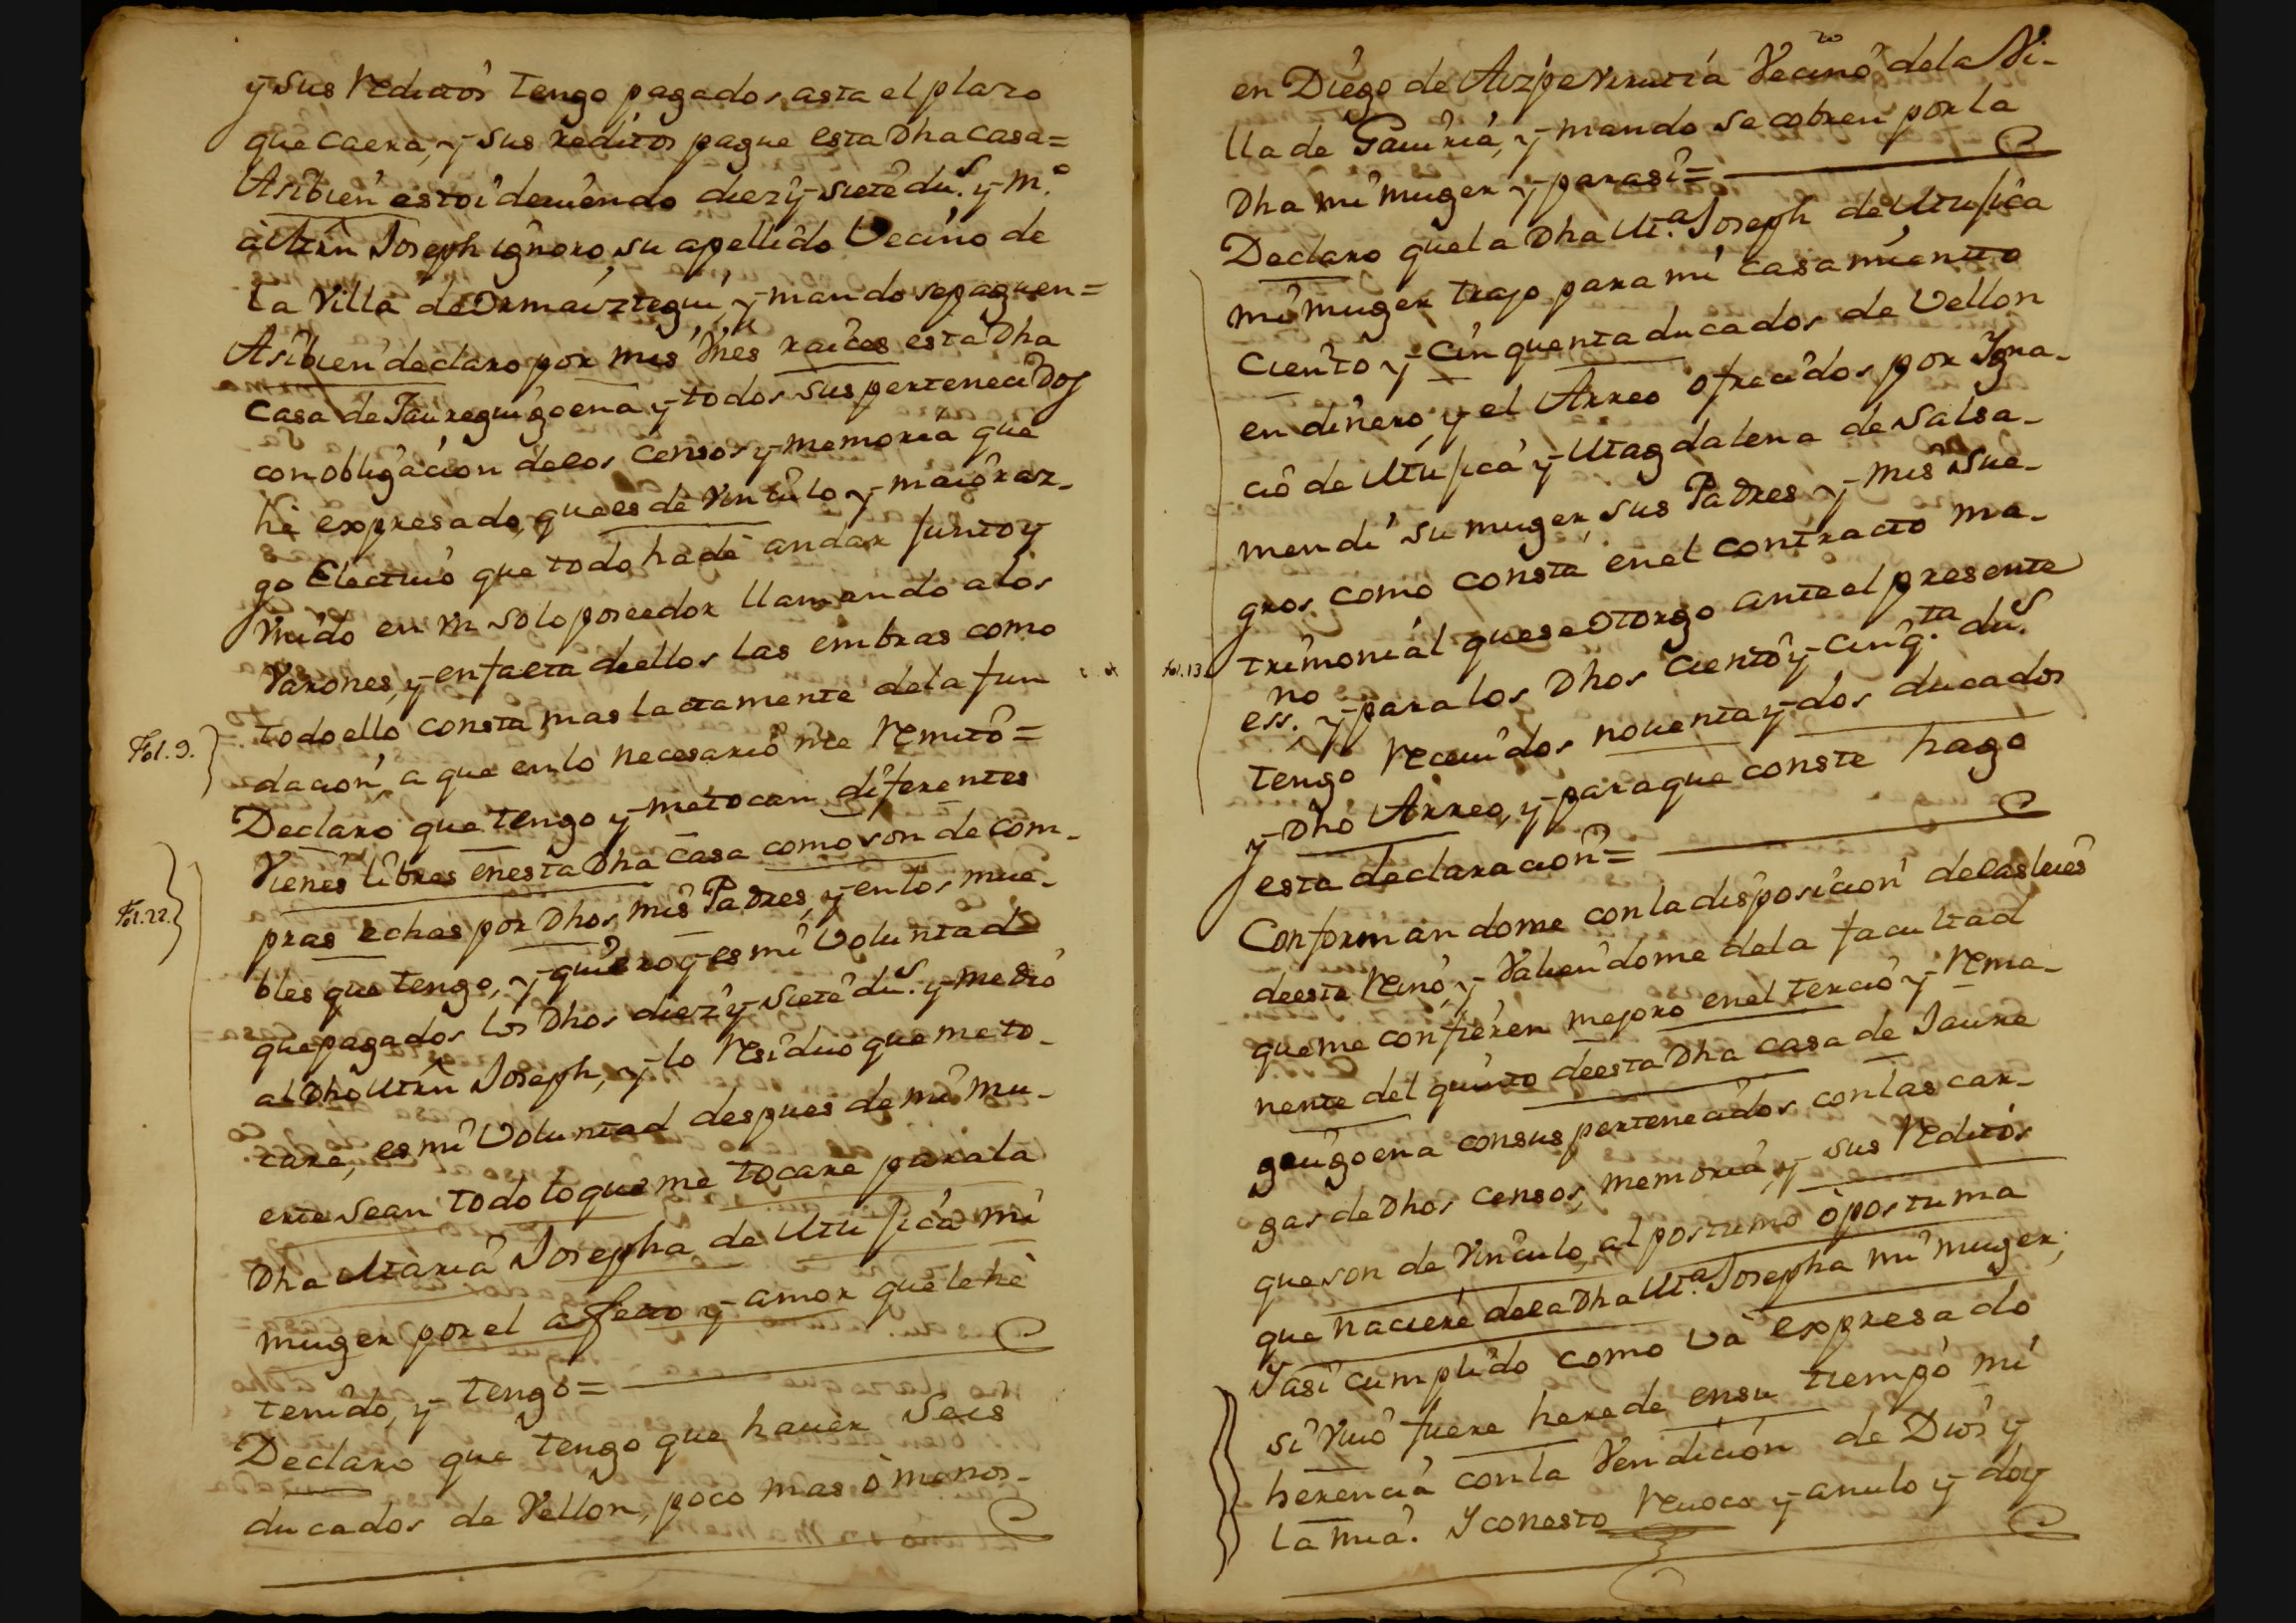 y sus Reditos tengo pagados, asta el plazo
que caera, y sus reditos pague esta Dha casa=
Asibien estoi deuiendo diez y siete dus. y mo.
à Mrn Joseph ignoro, su apellido Vecino de
la Villa de Ormaiztegui, y mando se paguen=
Asibien declaro por mis Vnes raices esta Dha
casa de Jaureguigoena y todos sus pertenecidos
con obligacion de los censos y memoria que
hè expresado, que es de Vinculo y maioraz-
go Electiuo que todo ha de andar junto y
Vnido en vn solo poseedor llamando a los
Varones, y en falta de ellos las embras como
todo ello consta mas lactamente de la fun
Fol. 9.
dacion, a que en lo necesario me Remito=
Declaro que tengo y me tocan diferentes
Vienes libres en esta Dha casa como son de com-
Fol. 22.
pras echas por Dhos, mis Padres, y en los mue-
bles que tengo, y quiero y es mi Voluntad
que pagados los Dhos diez y siete dus. y medio
al Dho Mrn Joseph, y lo Residuo que me to-
care, es mi Voluntad despues de mi mu-
erte sean todo lo que me tocare para la
Dha Maria Josepha de Mufica mi
muger por el afecto y amor que le hè
tenido, y tengo=
Declaro que tengo que hauer Seis
ducados de Vellon, poco mas ò menos-
en Diego de Aizpevrrutia Vecino de la Vi-
lla de Gauiria, y mando se cobren por la
Dha mi muger y para si=
Declaro que la Dha Ma. Joseph de Mufica
mi muger trajo para mi casamiento
ciento y cinquenta ducados de Vellon
en dinero, y el Arreo ofrecidos por Igna-
cio de Mufica y Magdalena de Salsa-
mendi su muger, sus Padres y mis Sue-
gros como consta en el contracto ma-
fol. 13.
trimonial que se otorgo ante el presente
essno., y para los Dhos ciento y cinqta. dus.
tengo Receuidos nouenta y dos ducados
y Dho Arreo, y para que conste hago
esta declaracion=
Conformandome con la disposicion de las leies
de este Reino, y Valiendome de la facultad
que me confieren mejoro en el tercio y Rema-
nente del quinto de esta Dha casa de Jaure
guigoena con sus pertenecidos con las car-
gas de Dhos censos, memoria, y sus Reditos
que son de Vinculo, al postumo ò postuma
que naciere de la Dha Ma. Josepha mi muger,
Y asi cumplido como và expresado
si Viuo fuere herede en su tiempo mi
herencia con la Vendicion de Dios y
la mia. Y con esto Reuoco y anulo y doy